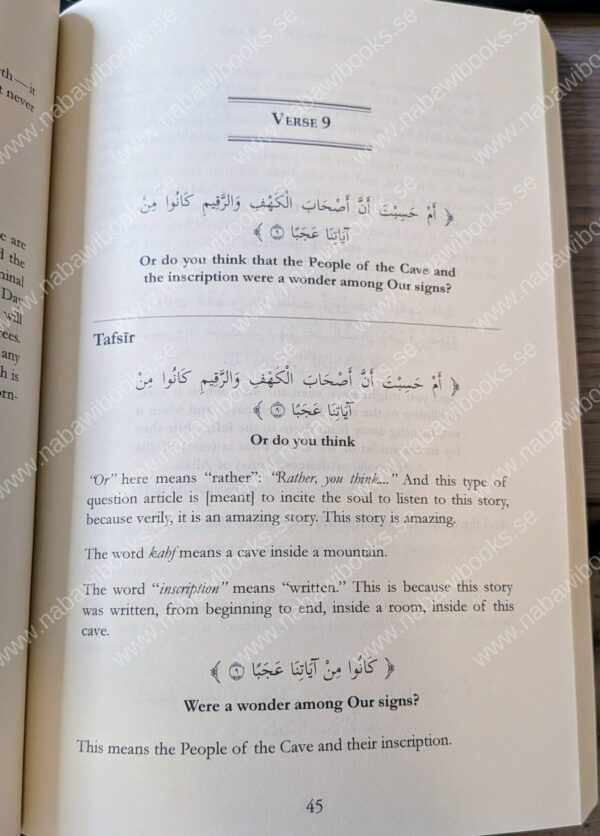 th—it
t never
e are
d the
ninal
Day
will
rees.
any
h is
orn-
VERSE 9
﴿ أَمْ حَسِبْتَ أَنَّ أَصْحَابَ الْكَهْفِ وَالرَّقِيمِ كَانُوا مِنْ
آيَاتِنَا عَجَبًا ۝٩ ﴾
Or do you think that the People of the Cave and
the inscription were a wonder among Our signs?
Tafsīr
﴿ أَمْ حَسِبْتَ أَنَّ أَصْحَابَ الْكَهْفِ وَالرَّقِيمِ كَانُوا مِنْ
آيَاتِنَا عَجَبًا ۝٩ ﴾
Or do you think
“Or” here means “rather”: “Rather, you think...” And this type of
question article is [meant] to incite the soul to listen to this story,
because verily, it is an amazing story. This story is amazing.
The word kahf means a cave inside a mountain.
The word “inscription” means “written.” This is because this story
was written, from beginning to end, inside a room, inside of this
cave.
﴿ كَانُوا مِنْ آيَاتِنَا عَجَبًا ۝٩ ﴾
Were a wonder among Our signs?
This means the People of the Cave and their inscription.
45
www.nabawibooks.se